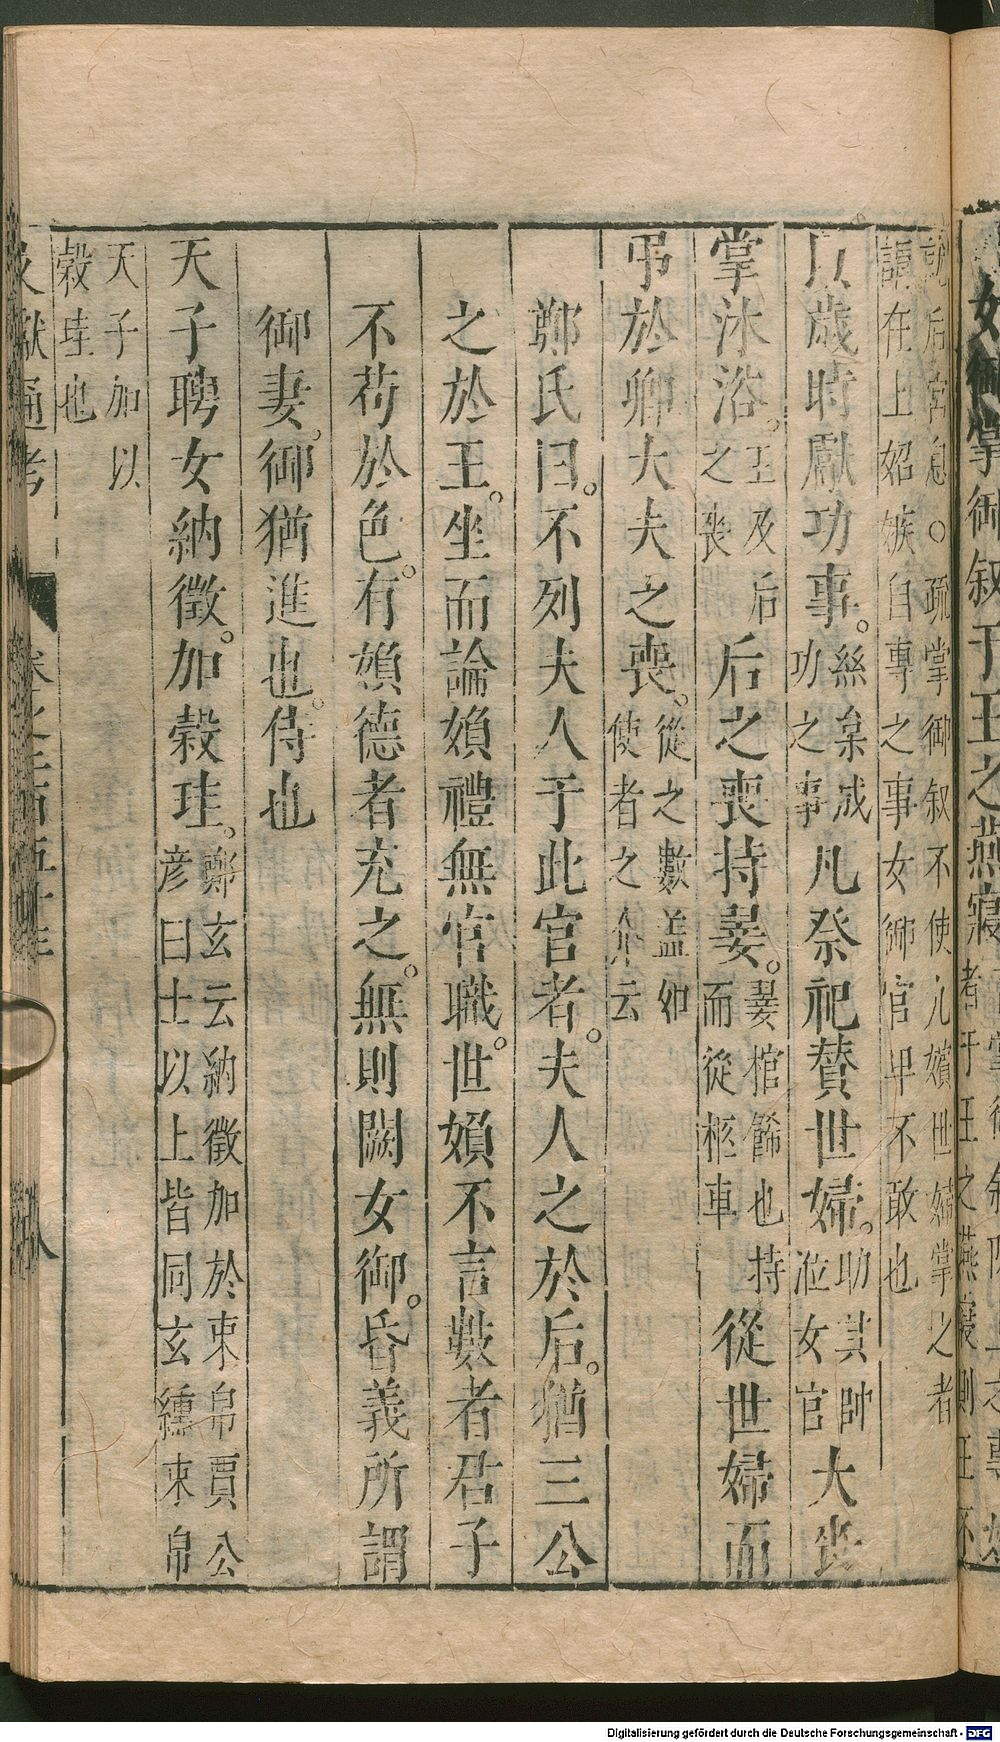 女御掌御叙于王之燕寢
者于王之燕寢則王不
就后宮息○疏掌御叙不使九嬪世婦掌之者
謂在上妬嫉自專之事女御官卑不敢也
以歲時獻功事。絲枲成功之事凡祭祀贊世婦。助其帥涖女官大喪
掌沐浴。王及后之喪后之喪持翣。翣棺飾也持而從柩車從世婦而
弔於卿大夫之喪。從之數盖如使者之介云
鄭氏曰。不列夫人于此官者。夫人之於后。猶三公
之於王。坐而論嬪禮無官職。世嬪不言數者君子
不苟於色。有嬪德者充之。無則闕女御。昏義所謂
御妻。御猶進也。侍也
天子聘女納徵。加穀圭。鄭玄云納徵加於束帛賈公彦曰士以上皆同玄纁束帛
天子加以
穀圭也
文獻通考
Digitalisierung gefördert durch die Deutsche Forschungsgemeinschaft - DFG